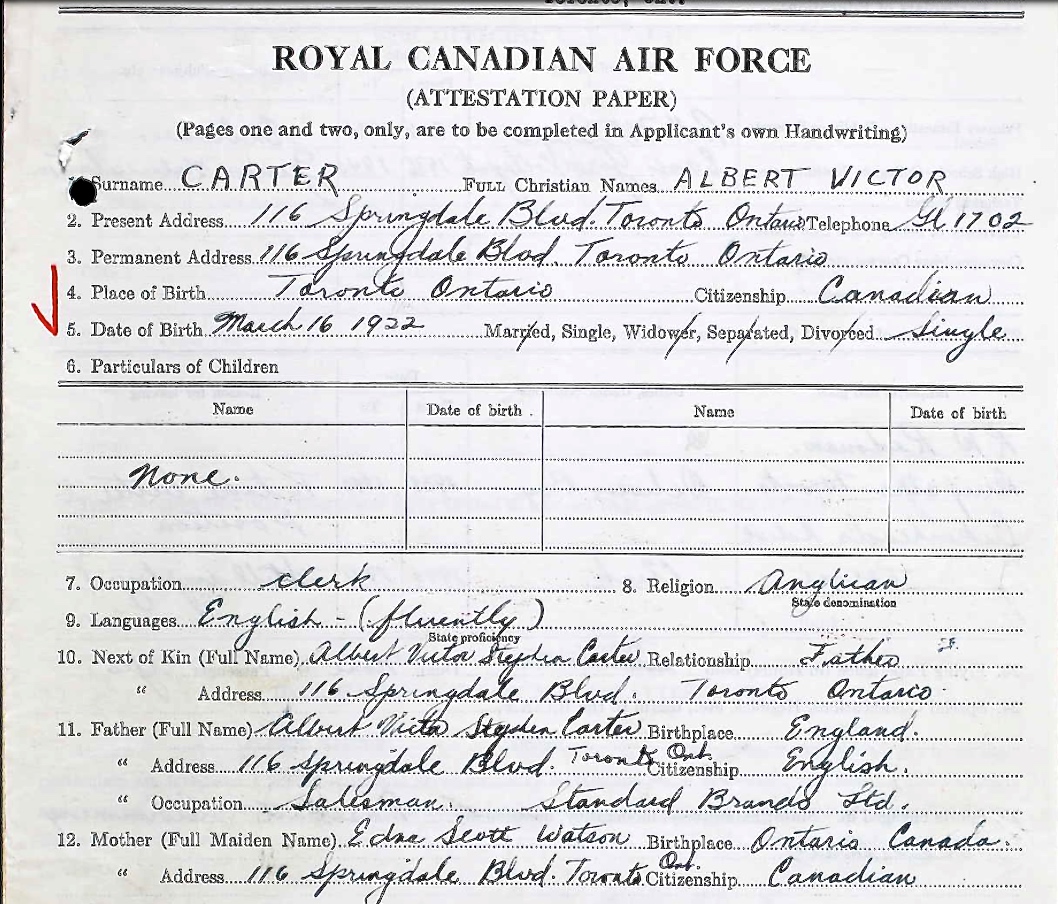 ROYAL CANADIAN AIR FORCE
(ATTESTATION PAPER)
(Pages one and two, only, are to be completed in Applicant's own Handwriting)
Surname CARTER FULL Christian Names ALBERT VICTOR
2. Present Address 116 Springdale Blvd. Toronto Ontario Telephone Gl 1702
3. Permanent Address 116 Springdale Blvd. Toronto Ontario
4. Place of Birth Toronto Ontario Citizenship Canadian
5. Date of Birth March 16 1922 Married, Single, Widower, Separated, Divorced Single
6. Particulars of Children
Name Date of birth Name Date of birth
None.
7. Occupation clerk 8. Religion Anglican
State denomination
9. Languages English - (fluently)
State proficiency
10. Next of Kin (Full Name) Albert Victor Stephen Carter Relationship Father
" Address 116 Springdale Blvd. Toronto Ontario
11. Father (Full Name) Albert Victor Stephen Carter Birthplace England.
" Address 116 Springdale Blvd. Toronto Ont. Citizenship English.
" Occupation Salesman. Standard Brands Ltd.
12. Mother (Full Maiden Name) Edna Scott Watson Birthplace Ontario Canada.
" Address 116 Springdale Blvd. Toronto Ont. Citizenship Canadian